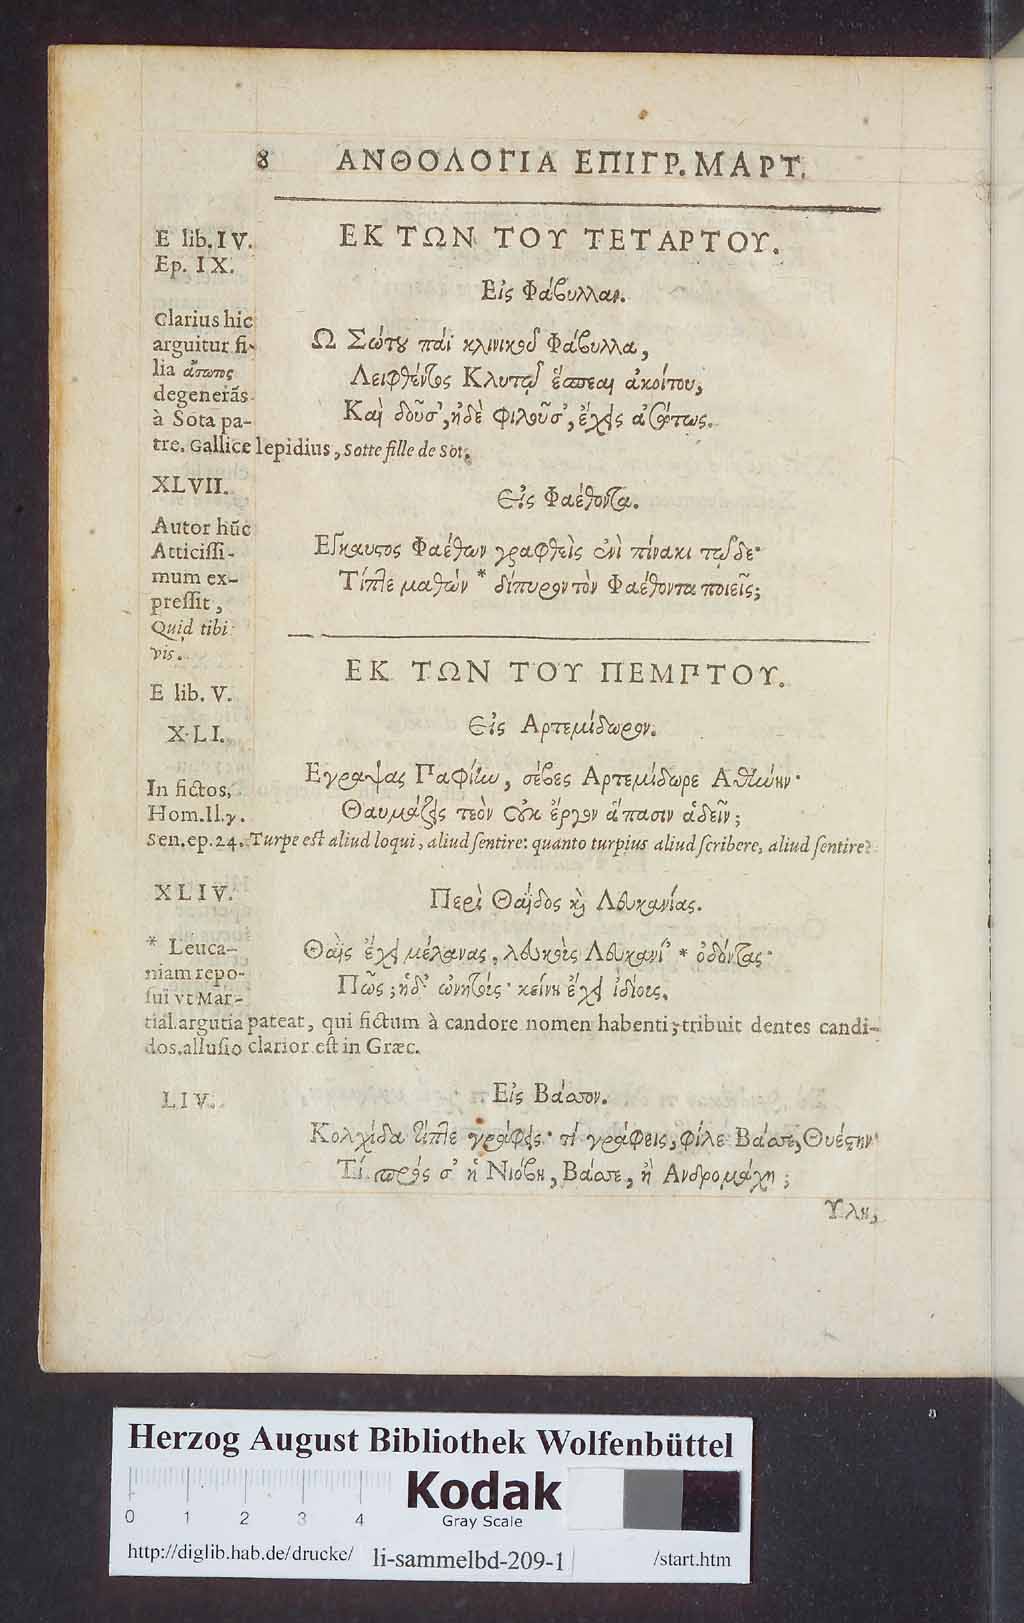 8 ΑΝΘΟΛΟΓΙΑ ΕΠΙΓΡ. ΜΑΡΤ.
E lib. IV.
Ep. IX.
ΕΚ ΤΩΝ ΤΟΥ ΤΕΤΑΡΤΟΥ.
Εἰς Φάβυλλαν.
Clarius hic
arguitur fi-
lia ἄσωτος
degenerās
à Sota pa-
tre. Gallice lepidius, Sotte fille de Sot.
Ω Σώτου παῖ κλινικοῦ Φάβυλλα,
Λειφθέντος Κλυτοῦ ἕσπεαι ἀκοίτου,
Καὶ δοῦσ', ἠδὲ φιλοῦσ', ἔχεις ἀσώτως.
XLVII.
Εἰς Φαέθοντα.
Autor hūc
Atticissi-
mum ex-
pressit,
Quid tibi
vis.
Εγκαυτος Φαέθων γραφθεὶς ἐνὶ πίνακι τῷδε·
Τίπτε μαθὼν * δίπυρον τὸν Φαέθοντα ποιεῖς;
E lib. V.
ΕΚ ΤΩΝ ΤΟΥ ΠΕΜΠΤΟΥ.
XLI.
Εἰς Αρτεμίδωρον.
In fictos,
Hom. Il. γ.
Εγραψας Παφίην, σέβες Αρτεμίδωρε Αθήνην·
Θαυμάζεις τεὸν οὐκ ἔργον ἅπασιν ἁδεῖν;
Sen. ep. 24. Turpe est aliud loqui, aliud sentire: quanto turpius aliud scribere, aliud sentire?
XLIV.
Περὶ Θαΐδος καὶ Λευκανίας.
* Leuca-
niam repo-
sui vt Mar-
tial. argutia pateat, qui fictum à candore nomen habenti, tribuit dentes candi-
dos. allusio clarior est in Græc.
Θαῒς ἔχει μέλανας, λευκοὺς Λευκανί' * ὀδόντας·
Πῶς; ἡδ' ὠνητούς· κείνη ἔχει ἰδίους.
LIV.
Εἰς Βάσσον.
Κολχίδα τίπτε γράφεις· τί γράφεις, φίλε Βάσσε, Θυέστην·
Τί πρός σ' ἡ Νιόβη, Βάσσε, ἢ Ανδρομάχη;
Υλη,
Herzog August Bibliothek Wolfenbüttel
Kodak
Gray Scale
0 1 2 3 4
http://diglib.hab.de/drucke/ li-sammelbd-209-1 /start.htm